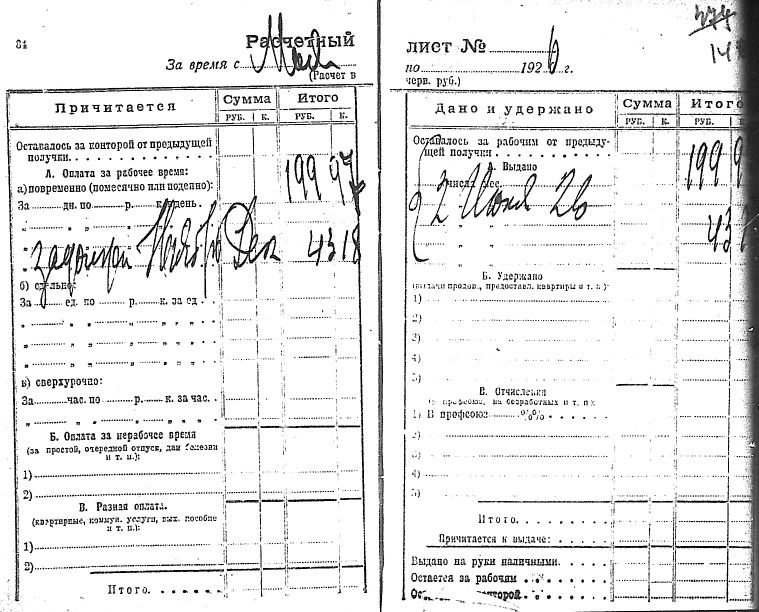 84
Расчетный
За время с Май
(Расчет в
Причитается Сумма Итого
РУБ. К. РУБ. К.
Оставалось за конторой от предыдущей
получки.
А. Оплата за рабочее время:
а) повременно (помесячно или поденно): 199 97
За дн. по р. к. день.
" " " "
Ноябрь Дек 43 18
б) сдельно:
За ед. по р. к. за ед.
" " " "
" " " "
" " " "
в) сверхурочно:
За час. по р. к. за час.
" " " "
Б. Оплата за нерабочее время
(за простой, очередной отпуск, дни болезни
и т. п.):
1)
2)
В. Разная оплата.
(квартирные, коммун. услуги, вых. пособие
и т. п.):
1)
2)
Итого.
274
14
ЛИСТ №
по 1926 г.
черв. руб.)
Дано и удержано Сумма Итого
РУБ. К. РУБ. К.
Оставалось за рабочим от предыду-
щей получки
А. Выдано 199 9
числа мес.
2 Июня 26
" " 43 1
" "
Б. Удержано
(выдачи продов., предоставл. квартиры и т. п.)
1)
2)
3)
4)
5)
В. Отчисления
(в профсоюз, на безработных и т. п.)
1) В профсоюз %%
2)
3)
4)
5)
Итого.
Причитается к выдаче:
Выдано на руки наличными.
Остается за рабочим
конторой